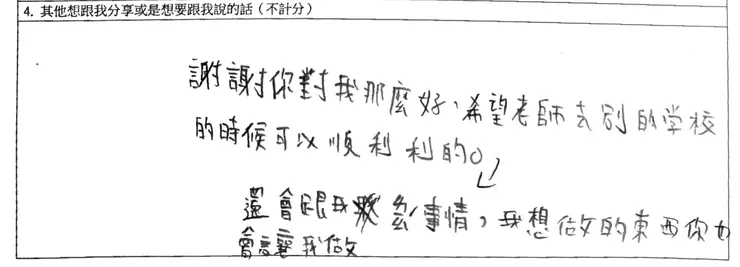 4. 其他想跟我分享或是想要跟我說的話（不計分）
謝謝你對我那麼好，希望老師去別的学校
的時候可以順利利的。
還會跟我 事情，我想做的東西你也
會讓我做